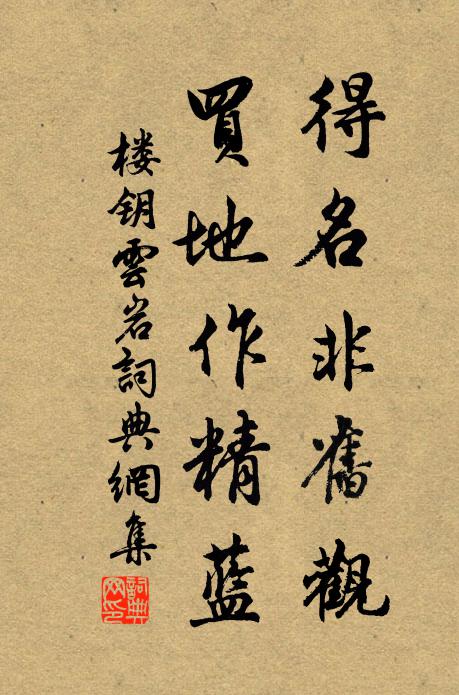 得名非舊觀
買地作精藍
楼钥雲岩詞典網集
詞典網印